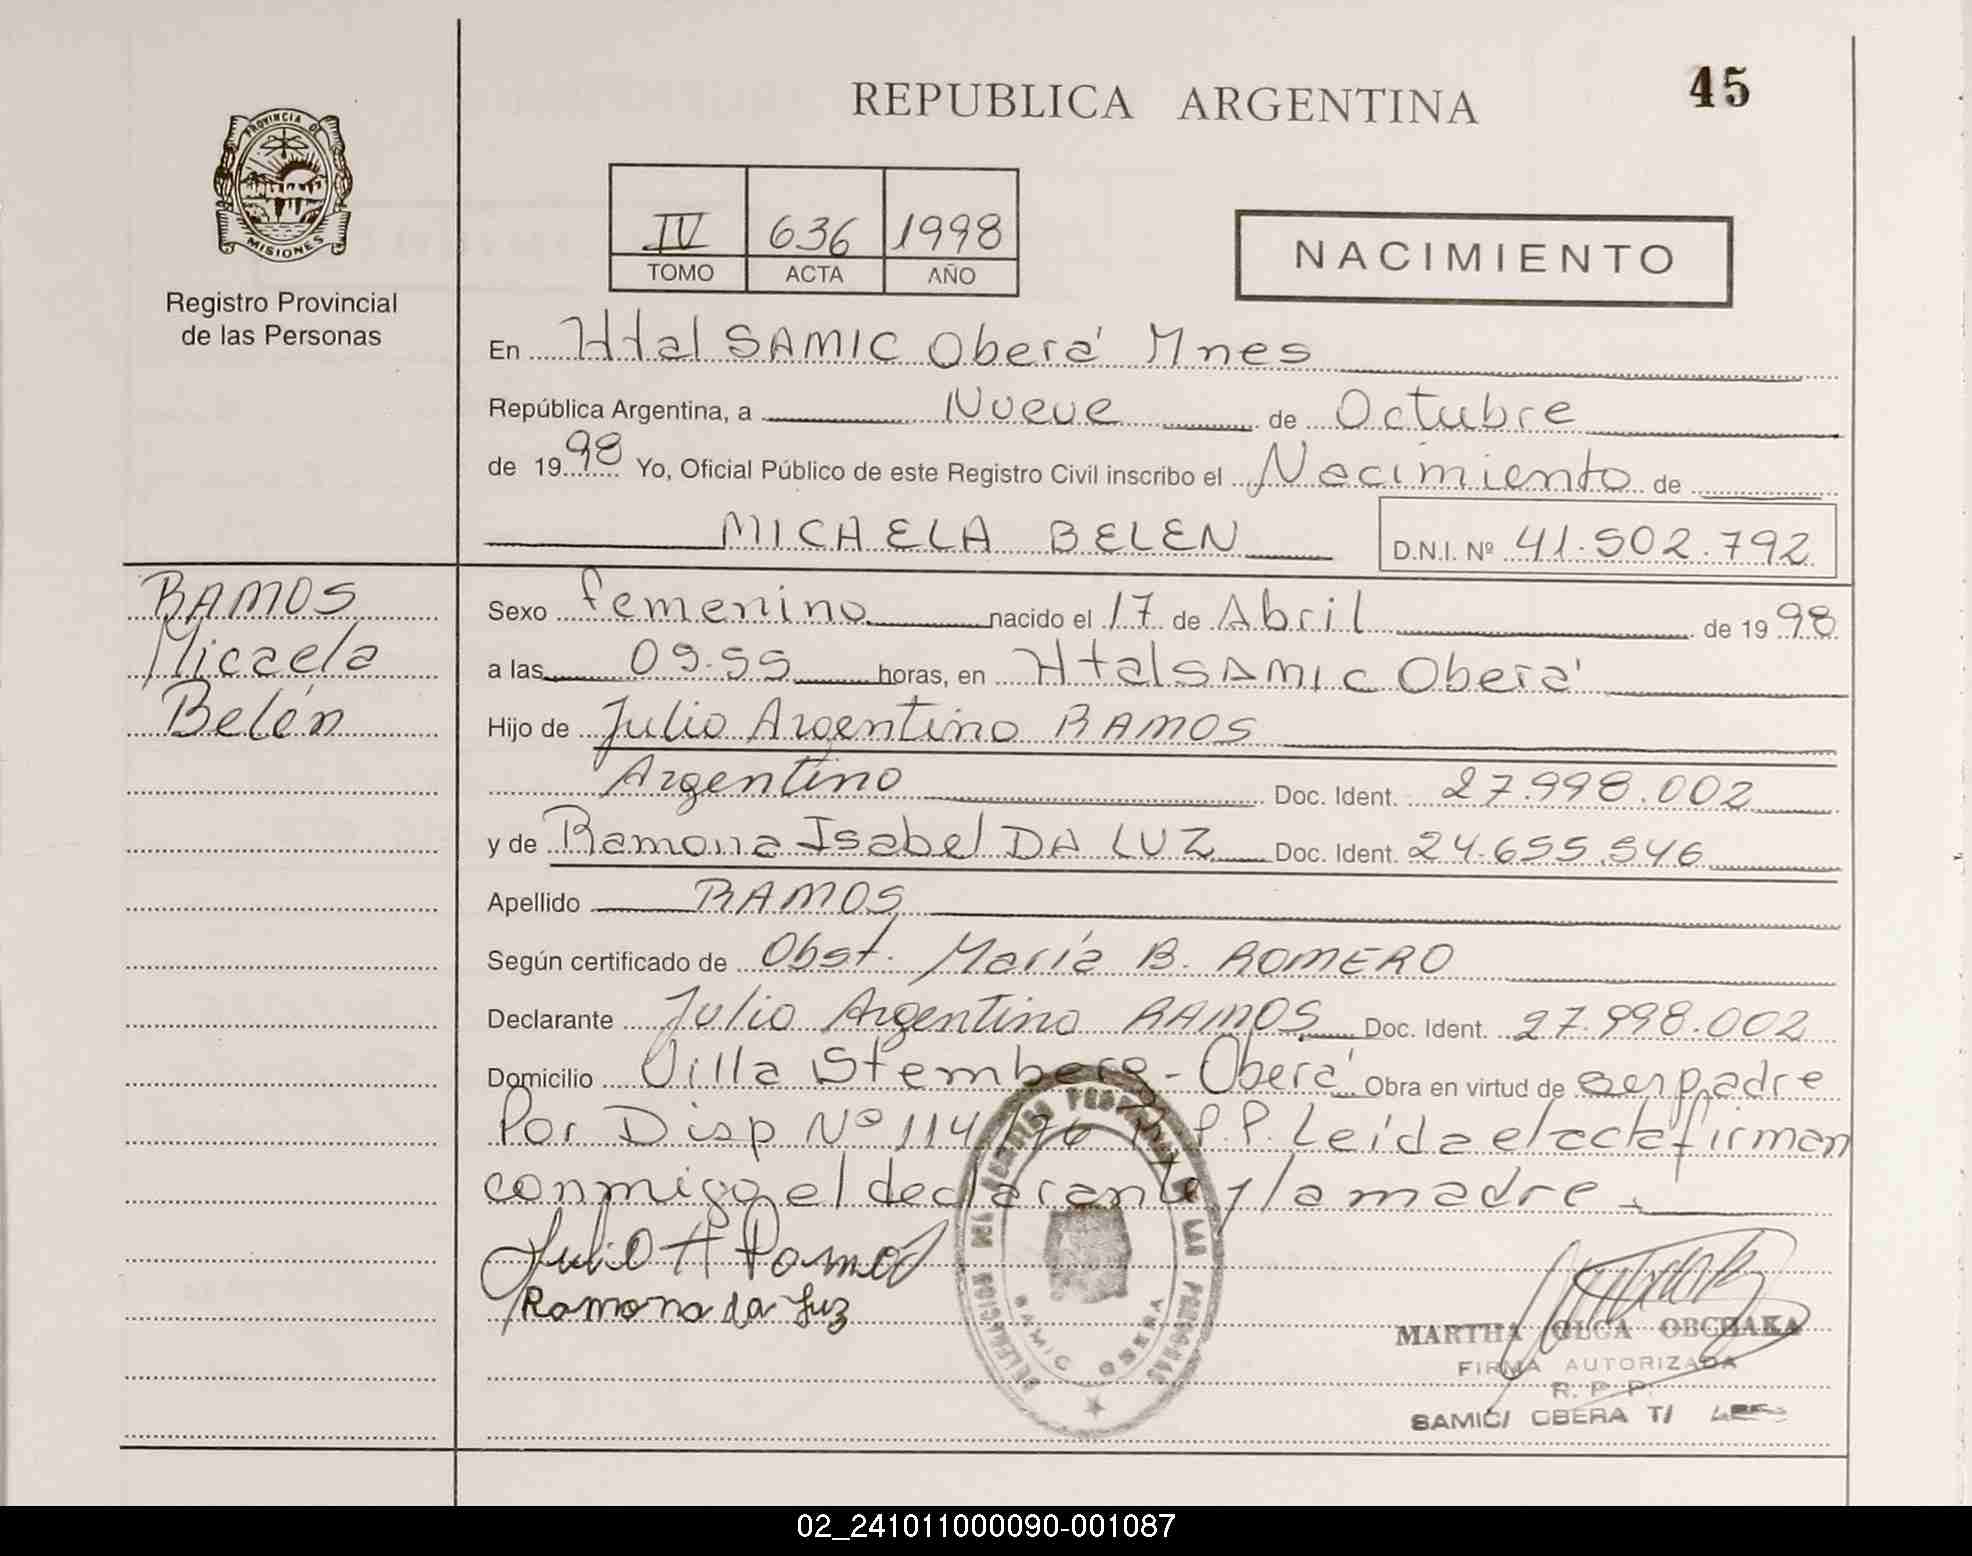 45
REPUBLICA ARGENTINA
PROVINCIA DE
MISIONES
Registro Provincial
de las Personas
IV 636 1998
TOMO ACTA AÑO
NACIMIENTO
En Htal SAMIC Oberá Mnes
República Argentina, a Nueve de Octubre
de 1998 Yo, Oficial Público de este Registro Civil inscribo el Nacimiento de
MICAELA BELEN D.N.I. Nº 41.502.792
RAMOS
Micaela
Belén
Sexo femenino nacido el 17 de Abril de 1998
a las 09.55 horas, en Htal SAMIC Oberá
Hijo de Julio Argentino RAMOS
Argentino Doc. Ident. 27.998.002
y de Ramona Isabel DA LUZ Doc. Ident. 24.655.546
Apellido RAMOS
Según certificado de Obst. María B. ROMERO
Declarante Julio Argentino RAMOS Doc. Ident. 27.998.002
Domicilio Villa Stemberg - Oberá Obra en virtud de ser padre
Por Disp Nº 114/76 R.P.P. Leída el acta firman
conmigo el declarante y la madre
Julio A Ramos
Ramona da Luz
SAMIC OBERA
MARTHA OLGA OBCHAKA
FIRMA AUTORIZADA
R. P. P.
SAMIC/ OBERA T/
02_241011000090-001087